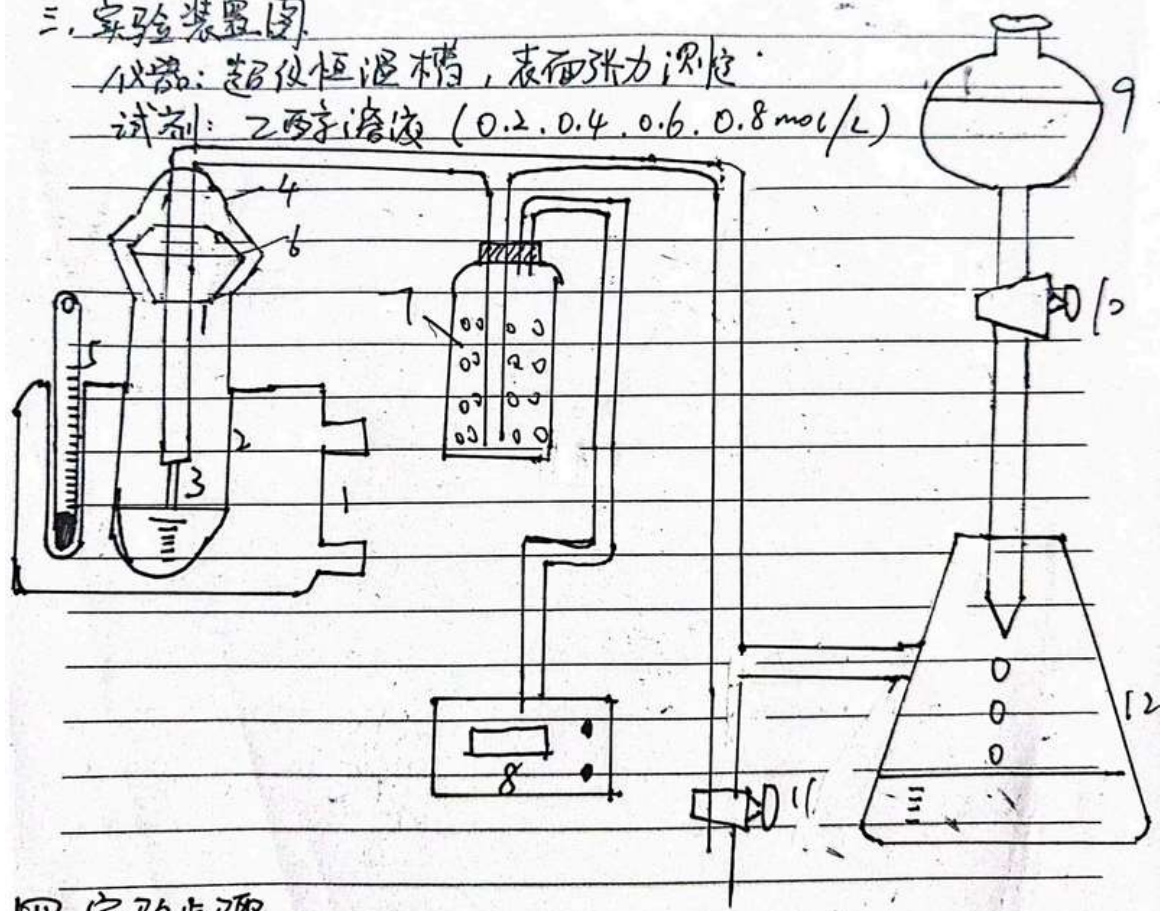 三.实验装置图
仪器:超级恒温槽,表面张力测定
试剂:乙醇溶液(0.2.0.4.0.6.0.8mol/L)
9
4
6
7
10
5
2
3
1
12
8
11
四.实验步骤